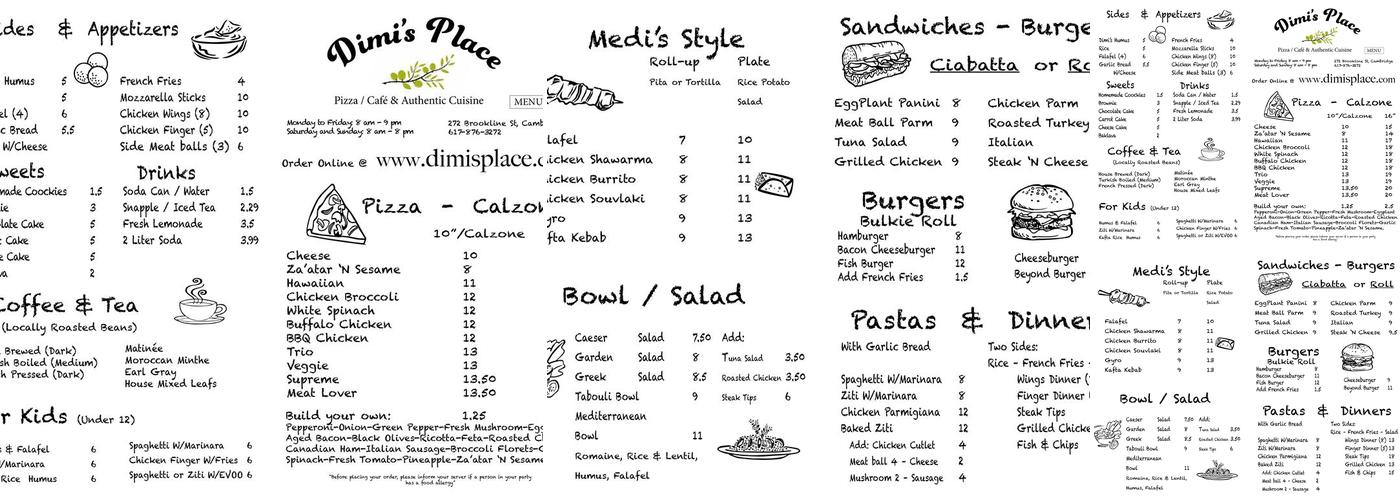 ides & Appetizers
Humus 5 French Fries 4
5 Mozzarella Sticks 10
el (4) 6 Chicken Wings (8) 10
c Bread 5.5 Chicken Finger (5) 10
W/Cheese Side Meat balls (3) 6
weets Drinks
made Coockies 1.5 Soda Can / Water 1.5
ie 3 Snapple / Iced Tea 2.29
late Cake 5 Fresh Lemonade 3.5
t Cake 5 2 Liter Soda 3.99
Cake 5
va 2
offee & Tea
(Locally Roasted Beans)
Brewed (Dark) Matinée
sh Boiled (Medium) Moroccan Minthe
h Pressed (Dark) Earl Gray
House Mixed Leafs
r Kids (Under 12)
s & Falafel 6 Spaghetti W/Marinara 6
/Marinara 6 Chicken Finger W/Fries 6
Rice Humus 6 Spaghetti or Ziti W/EVOO 6
Dimi's Place
Pizza / Café & Authentic Cuisine MENU
Monday to Friday: 8 am - 9 pm 272 Brookline St, Camb
Saturday and Sunday: 8 am - 9 pm 617-876-3272
Order Online @ www.dimisplace.c
Pizza - Calzon
10"/Calzone
Cheese 10
Za'atar 'N Sesame 8
Hawaiian 11
Chicken Broccoli 12
White Spinach 12
Buffalo Chicken 12
BBQ Chicken 12
Trio 13
Veggie 13
Supreme 13.50
Meat Lover 13.50
Build your own: 1.25
Pepperoni-Onion-Green Pepper-Fresh Mushroom-Egg
Aged Bacon-Black Olives-Ricotta-Feta-Roasted C
Canadian Ham-Italian Sausage-Broccoli Florets-G
Spinach-Fresh Tomato-Pineapple-Za'atar 'N Sesame
"Before placing your order, please inform your server if a person in your party
has a food allergy"
Medi's Style
Roll-up Plate
Pita or Tortilla Rice Potato
Salad
lafel 7 10
icken Shawarma 8 11
icken Burrito 8 11
icken Souvlaki 8 11
yro 9 13
fta Kebab 9 13
Bowl / Salad
Caeser Salad 7.50 Add:
Garden Salad 8 Tuna Salad 3.50
Greek Salad 8.5 Roasted Chicken 3.50
Tabouli Bowl 9 Steak Tips 6
Mediterranean
Bowl 11
Romaine, Rice & Lentil,
Humus, Falafel
Sandwiches - Burge
Ciabatta or Ro
EggPlant Panini 8 Chicken Parm
Meat Ball Parm 9 Roasted Turkey
Tuna Salad 9 Italian
Grilled Chicken 9 Steak 'N Cheese
Burgers
Bulkie Roll
Hamburger 8
Bacon Cheeseburger 11 Cheeseburger
Fish Burger 12 Beyond Burger
Add French Fries 1.5
Pastas & Dinner
With Garlic Bread Two Sides:
Rice - French Fries -
Spaghetti W/Marinara 8 Wings Dinner (
Ziti W/Marinara 8 Finger Dinner
Chicken Parmigiana 12 Steak Tips
Baked Ziti 12 Grilled Chicke
Add: Chicken Cutlet 4 Fish & Chips
Meat ball 4 - Cheese 2
Mushroom 2 - Sausage 4
Sides & Appetizers
Dimi's Humus 5 French Fries 4
Rice 5 Mozzarella Sticks 10
Falafel (4) 6 Chicken Wings (8) 10
Garlic Bread 5.5 Chicken Finger (5) 10
W/Cheese Side Meat balls (3) 6
Sweets Drinks
Homemade Coockies 1.5 Soda Can / Water 1.5
Brownie 3 Snapple / Iced Tea 2.29
Chocolate Cake 5 Fresh Lemonade 3.5
Carrot Cake 5 2 Liter Soda 3.99
Cheese Cake 5
Baklava 2
Coffee & Tea
(Locally Roasted Beans)
House Brewed (Dark) Matinée
Turkish Boiled (Medium) Moroccan Minthe
French Pressed (Dark) Earl Gray
House Mixed Leafs
For Kids (Under 12)
Humus & Falafel 6 Spaghetti W/Marinara 6
Ziti W/Marinara 6 Chicken Finger W/Fries 6
Kafta Rice Humus 6 Spaghetti or Ziti W/EVOO 6
Dimi's Place
Pizza / Café & Authentic Cuisine MENU
Monday to Friday: 8 am - 9 pm 272 Brookline St, Cambridge
Saturday and Sunday: 8 am - 9 pm 617-876-3272
Order Online @ www.dimisplace.com
Pizza - Calzone
10"/Calzone 16"
Cheese 10 15
Za'atar 'N Sesame 8 14
Hawaiian 11 17
Chicken Broccoli 12 18
White Spinach 12 18
Buffalo Chicken 12 18
BBQ Chicken 12 18
Trio 13 19
Veggie 13 19
Supreme 13.50 20
Meat Lover 13.50 20
Build your own: 1.25 2.5
Pepperoni-Onion-Green Pepper-Fresh Mushroom-Eggplant
Aged Bacon-Black Olives-Ricotta-Feta-Roasted Chicken
Canadian Ham-Italian Sausage-Broccoli Florets-Garlic
Spinach-Fresh Tomato-Pineapple-Za'atar 'N Sesame,
Medi's Style
Roll-up Plate
Pita or Tortilla Rice Potato
Salad
Falafel 7 10
Chicken Shawarma 8 11
Chicken Burrito 8 11
Chicken Souvlaki 8 11
Gyro 9 13
Kafta Kebab 9 13
Bowl / Salad
Caeser Salad 7.50 Add:
Garden Salad 8 Tuna Salad 3.50
Greek Salad 8.5 Roasted Chicken 3.50
Tabouli Bowl 9 Steak Tips 6
Mediterranean
Bowl 11
Romaine, Rice & Lentil,
Humus, Falafel
Sandwiches - Burgers
Ciabatta or Roll
EggPlant Panini 8 Chicken Parm 9
Meat Ball Parm 9 Roasted Turkey 9
Tuna Salad 9 Italian 9
Grilled Chicken 9 Steak 'N Cheese 9.5
Burgers
Bulkie Roll
Hamburger 8
Bacon Cheeseburger 11 Cheeseburger 9
Fish Burger 12 Beyond Burger 11
Add French Fries 1.5
Pastas & Dinners
With Garlic Bread Two Sides:
Rice - French Fries - Salad
Spaghetti W/Marinara 8 Wings Dinner (8) 13
Ziti W/Marinara 8 Finger Dinner (5) 13
Chicken Parmigiana 12 Steak Tips 18
Baked Ziti 12 Grilled Chicken 13
Add: Chicken Cutlet 4 Fish & Chips 15
Meat ball 4 - Cheese 2
Mushroom 2 - Sausage 4